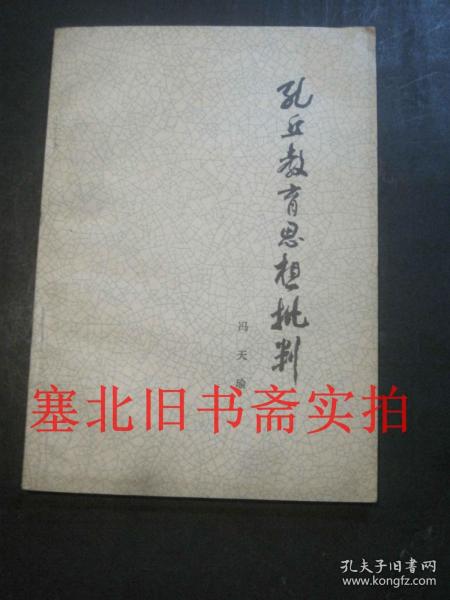 孔丘教育思想批判
冯天瑜
塞北旧书斋实拍
孔夫子旧书网
www.kongfz.com